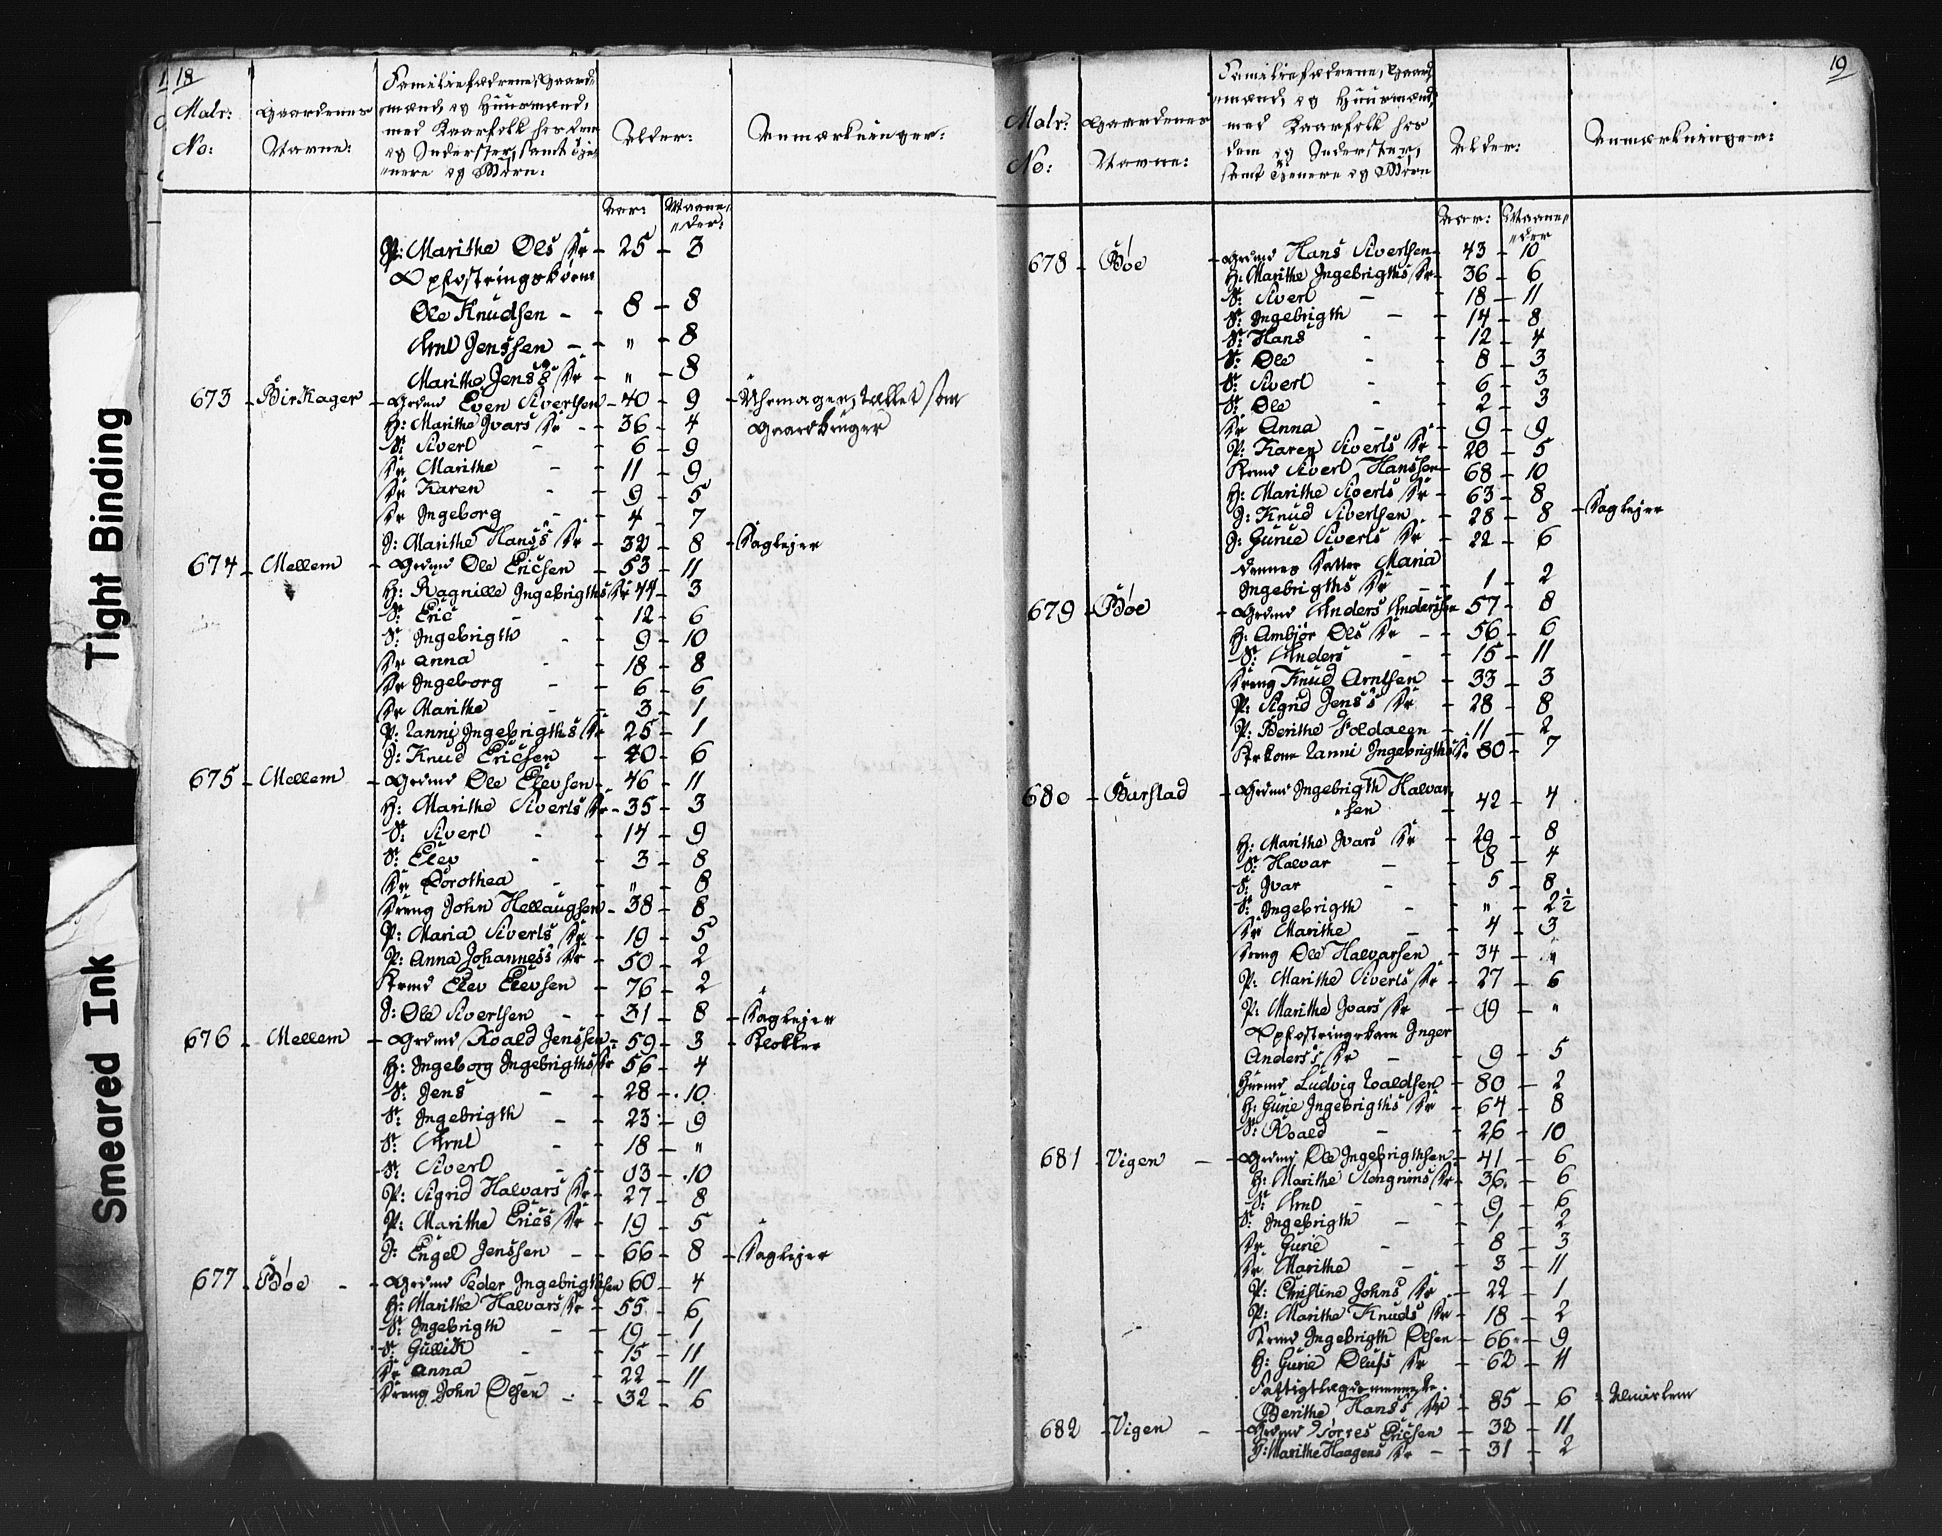 Tight Binding
Smeared Ink
18
Matr: No:
Gaardenes Navne:
Familiefædrene, Gaardmænd, og Huusmænd,
med Kaarfolk hos dem
og Inderster, samt Tjenere og Børn:
Alder:
Anmærkninger:
Aar: Maaneder:
P: Marithe Ols Dr - 25 - 3
Opfostringsbørn
Ole Knudsen - 8 - 8
Arnt Jenssen - " - 8
Marithe Jenss Dr - " - 8
673 - Birkager - Grdmd Even Sivertsen - 40 - 9 - Uhrmager, tællet som
H: Marithe Ivars Dr - 36 - 4 Gaardbruger
S: Sivert - 6 - 9
Dr Marithe - 11 - 9
Dr Karen - 9 - 5
Dr Ingeborg - 4 - 7
J: Marithe Hanss Dr - 32 - 8 - Daglejer
674 - Mellem - Grdmd Ole Ericsen - 53 - 11
H: Ragnille Ingebrigths Dr 44 - 3
S: Eric - 12 - 6
S: Ingebrigth - 9 - 10
Dr Anna - 18 - 8
Dr Ingeborg - 6 - 6
Dr Marithe - 3 - 1
P: Ranni Ingebrigths Dr 25 - 1
J: Knud Ericsen - 40 - 6
675 - Mellem - Grdmd Ole Elevsen - 46 - 11
H: Marithe Siverts Dr - 35 - 3
S: Sivert - 14 - 9
S: Elev - 3 - 8
Dr Dorothea - " - 8
Dreng John Hellaugsen - 38 - 8
P: Maria Siverts Dr - 19 - 5
P: Anna Johanness Dr - 50 - 2
Krmd Elev Elevsen - 76 - 2
J: Ole Sivertsen - 31 - 8 - Daglejer
676 - Mellem - Grdmd Roald Jenssen - 59 - 3 - Klokker
H: Ingeborg Ingebrigths Dr 56 - 4
S: Jens - 28 - 10
S: Ingebrigth - 23 - 9
S: Arnt - 18 - "
S: Sivert - 13 - 10
P: Sigrid Halvars Dr - 27 - 8
P: Marithe Erics Dr - 19 - 5
J: Engel Jenssen - 66 - 8 - Daglejer
677 - Bøe - Grdmd Peder Ingebrigthsen 60 - 4
H: Marithe Halvars Dr - 55 - 6
S: Ingebrigth - 19 - 1
S: Gullick - 15 - 11
Dr Anna - 22 - 11
Dreng John Olsen - 32 - 6
19
Matr: No:
Gaardenes Navne:
Familiefædrene, Gaardmænd, og Huusmænd,
med Kaarfolk hos
dem og Inderster,
samt Tjenere og Børn
Alder:
Anmærkninger:
Aar: Maaneder
678 - Bøe - Grdmd Hans Sivertsen - 43 - 10
H: Marithe Ingebrigths Dr - 36 - 6
S: Sivert - 18 - 11
S: Ingebrigth - 14 - 8
S: Hans - 12 - 4
S: Ole - 8 - 3
S: Sivert - 6 - 3
S: Ole - 2 - 3
Dr Anna - 9 - 9
P: Karen Siverts Dr - 20 - 5
Krmd Sivert Hanssen - 68 - 10
H: Marithe Siverts Dr - 63 - 8
J: Knud Sivertsen - 28 - 8 - Daglejer
J: Gurie Siverts Dr - 22 - 6
dennes Datter Maria
Ingebrigths Dr - 1 - 2
679 - Bøe - Grdmd Anders Andersen - 57 - 8
H: Ambjør Ols Dr - 56 - 6
S: Anders - 15 - 11
Dreng Knud Arntsen - 33 - 3
P: Sigrid Jenss Dr - 28 - 8
P: Berithe Foldalen - 11 - 2
Krkone Ranni Ingebrigths Dr 80 - 7
680 - Burstad - Grdmd Ingebrigth Halvar
"sen - 42 - 4
H: Marithe Ivars Dr - 29 - 8
S: Halvar - 8 - 4
S: Ivar - 5 - 8
S: Ingebrigth - " - 2½
Dr Marithe - 4 - 3
Dreng Ole Halvarsen - 34 - "
P: Marithe Siverts Dr - 27 - 6
P: Marithe Ivars Dr - 19 - "
Opfostringsbarn Inger
Anderss Dr - 9 - 5
Husmd Ludvig Roaldsen - 80 - 2
H: Gurie Ingebrigths Dr - 64 - 8
S: Roald - 26 - 10
681 - Vigen - Grdmd Ole Ingebrigthsen - 41 - 6
H: Marithe Stengrims Dr - 36 - 6
S: Arnt - 9 - 6
S: Ingebrigth - 1 - 2
Dr Gurie - 8 - 3
Dr Marithe - 3 - 11
P: Christine Johns Dr - 22 - 1
P: Marithe Knuds Dr - 18 - 2
Krmd Ingebrigth Olsen - 66 - 9
H: Gurie Olufs Dr - 62 - 11
Fattigtlægdsmenneske
Berithe Hanss Dr - 85 - 6 - Almissem
682 - Vigen - Grdmd Torres Ericsen - 32 - 11
H: Marithe Haagens Dr - 31 - 2